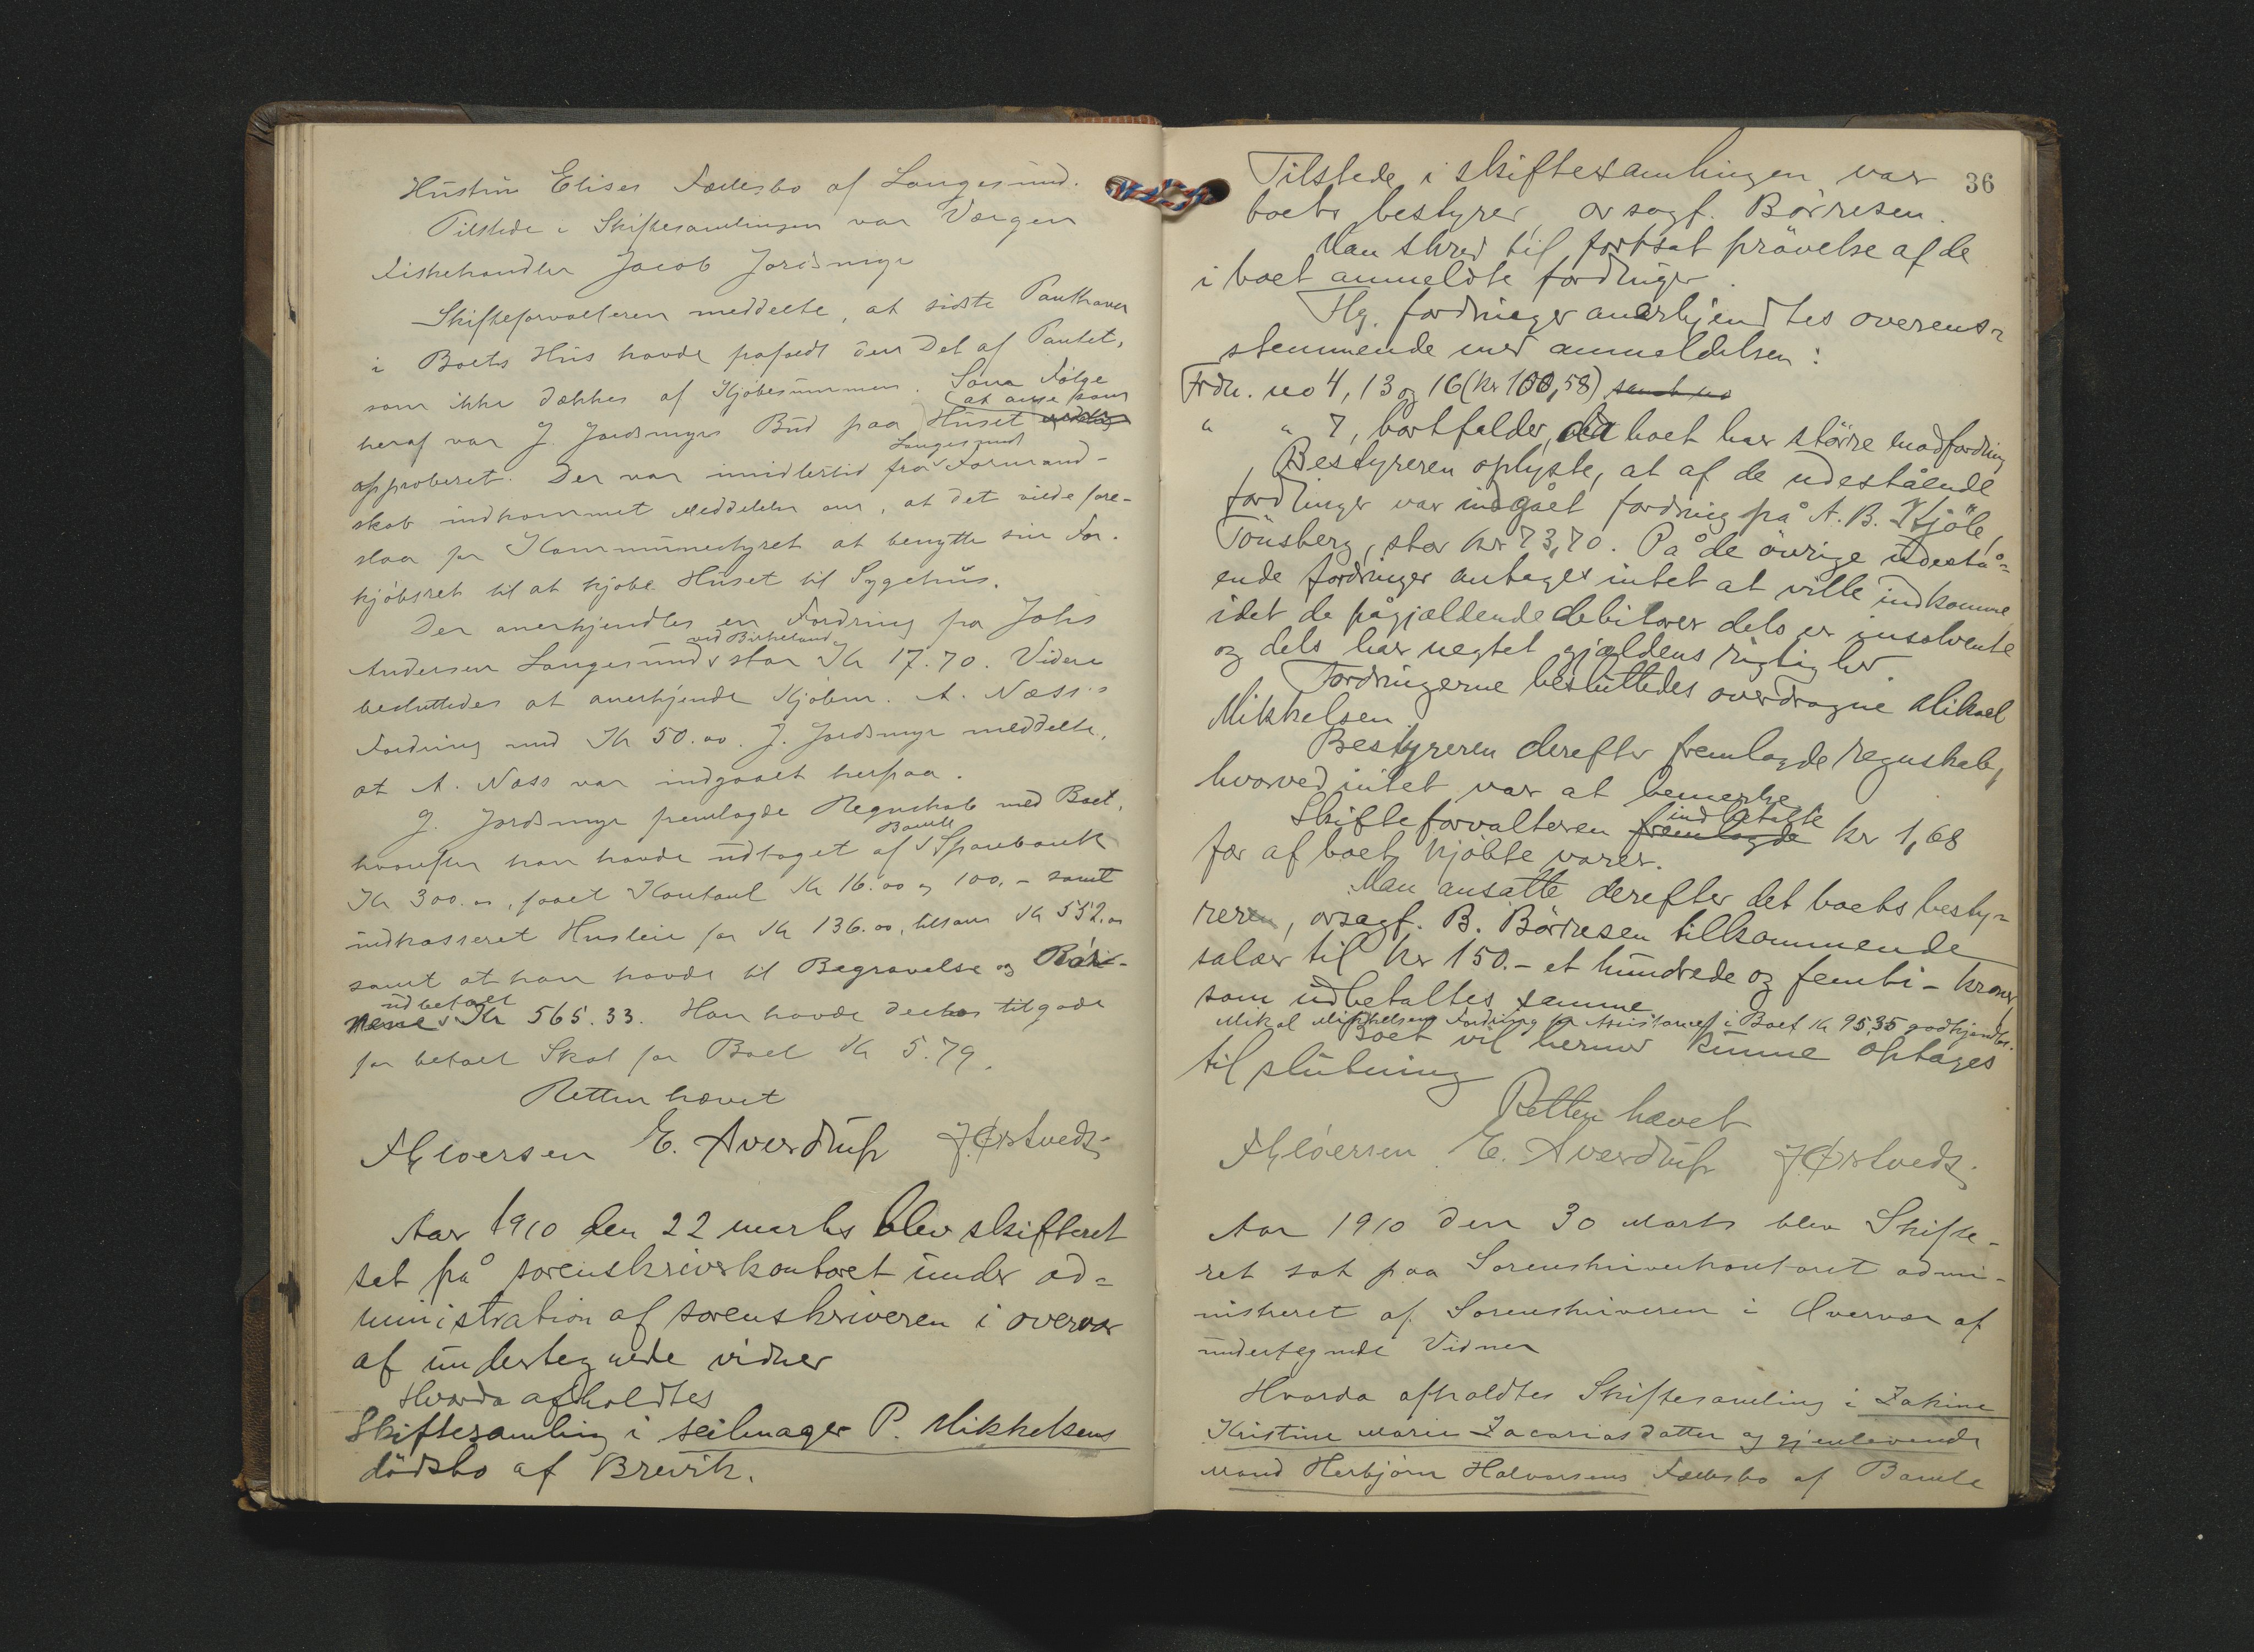 Hustru Elises Fællesbo af Langesund.
Tilstede i Skiftesamlingen var Værgen
Fiskehandler Jacob Jordsmyr
Skifteforvalteren meddelte, at sidste Panthaver
i Boets Hus havde frafaldt den Del af Pantet,
som ikke dækkes af Kjøbesummen. Som Følge
at anse som
heraf var J. Jordsmyrs Bud paa Huset
Langesunds
approberet. Der var imidlertid fra Formand-
skab indkommet Meddelelse om, at det vilde fore-
slaa for Kommunestyret at benytte sin For-
kjøbsret til at kjøbe Huset til Sygehus.
Der anerkjendtes en Fordring fra Johs
ved Birkeland
Andersen Langesund stor Kr 17.70. Videre
besluttedes at anerkjende Kjøbm. A. Næss's
Fordring med Kr 50.00. J. Jordsmyr meddelte,
at A. Næss var indgaaet herpaa.
J. Jordsmyr fremlagde Regnskab med Boet,
Bamble
hvorefter han havde udtaget af Sparebank
Kr 300.00, faaet Kontant Kr 16.00 og 100.- samt
indkasseret Husleie for Kr 136.00, tilsam Kr 552.00
samt at han havde til Begravelse og
udbetalt
Kr 565.33. Han havde derhos tilgode
for betalt Skat for Boet Kr 5.79.
Retten hævet
E. Averdrup J. Ørstvedt
Aar 1910 den 22 marts blev skifteret
sat på sorenskriverkontoret under ad=
ministration af sorenskriveren i overvær
af undertegnede vidner
Hvorda afholdtes
Skiftesamling i seilmager P. Mikkelsens
dødsbo af Brevik.
36
Tilstede i skiftesamlingen var
boets bestyrer, orsagf. Börresen.
Man skred til fortsat prövelse af de
i boet anmeldte fordringer.
Flg. fordringer anerkjendtes overens=
stemmende med anmeldelsen:
Frdr. no 4, 13 og 16 (kr 100,58) samt no
" " 7, bortfalder, da boet har større modfordring
Bestyreren oplyste, at af de udestående
fordringer var indgået fordring på A. B. Kjöle,
Tönsberg, stor kr 73,70. På de övrige udestå=
ende fordringer antages intet at ville indkomme,
idet de pågjældende debitorer dels er insolvente
og dels har negtet gjældens rigtighed.
Fordringerne besluttedes overdragne Mikael
Mikkelsen.
Bestyreren derefter fremlagde regnskab,
hvorved intet var at bemerke.
indbetalte
Skifteforvalteren fremlagde kr 1,68
for af boet kjöbte varer.
Man ansatte derefter det boets besty=
reren, orsagf. B. Börresen tilkommende
salær til kr 150.- et hundrede og femti - kroner,
som udbetaltes samme.
Mikal Mikkelsens Fordring for Assistance i Boet Kr 95,35 godkjendtes.
Boet vil herved kunne optages
til slutning
Retten hævet
E. Averdrup J. Ørstvedt
Aar 1910 den 30 Marts blev Skifte-
ret sat paa Sorenskriverkontoret admi-
nistreret af Sorenskriveren i Overvær af
undertegnede Vidner
Hvorda afholdtes Skiftesamling i Zakine
Kristine Marie Zacariasdatter og gjenlevende
Mand Herbjørn Halvorsens Fællesbo af Bamle